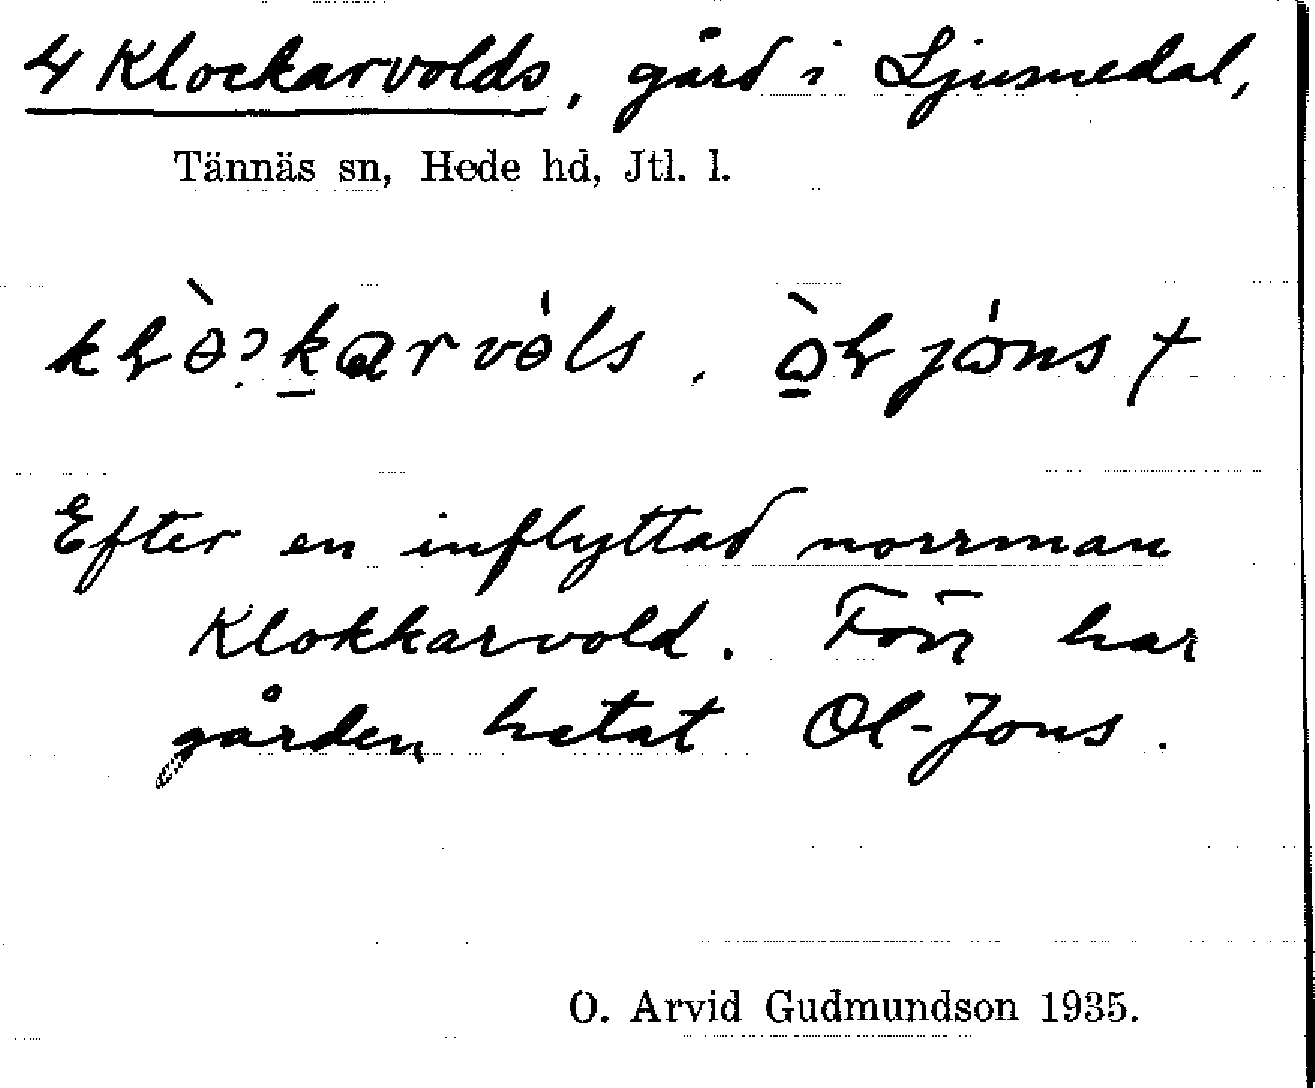 4 Klockarvolds, gård i Ljusnedal,
Tännäs sn, Hede hd, Jtl. l.
Efter en inflyttad norrman
Klokkarvold. Förr har
gården hetat Ol-Jons.
O. Arvid Gudmundson 1935.